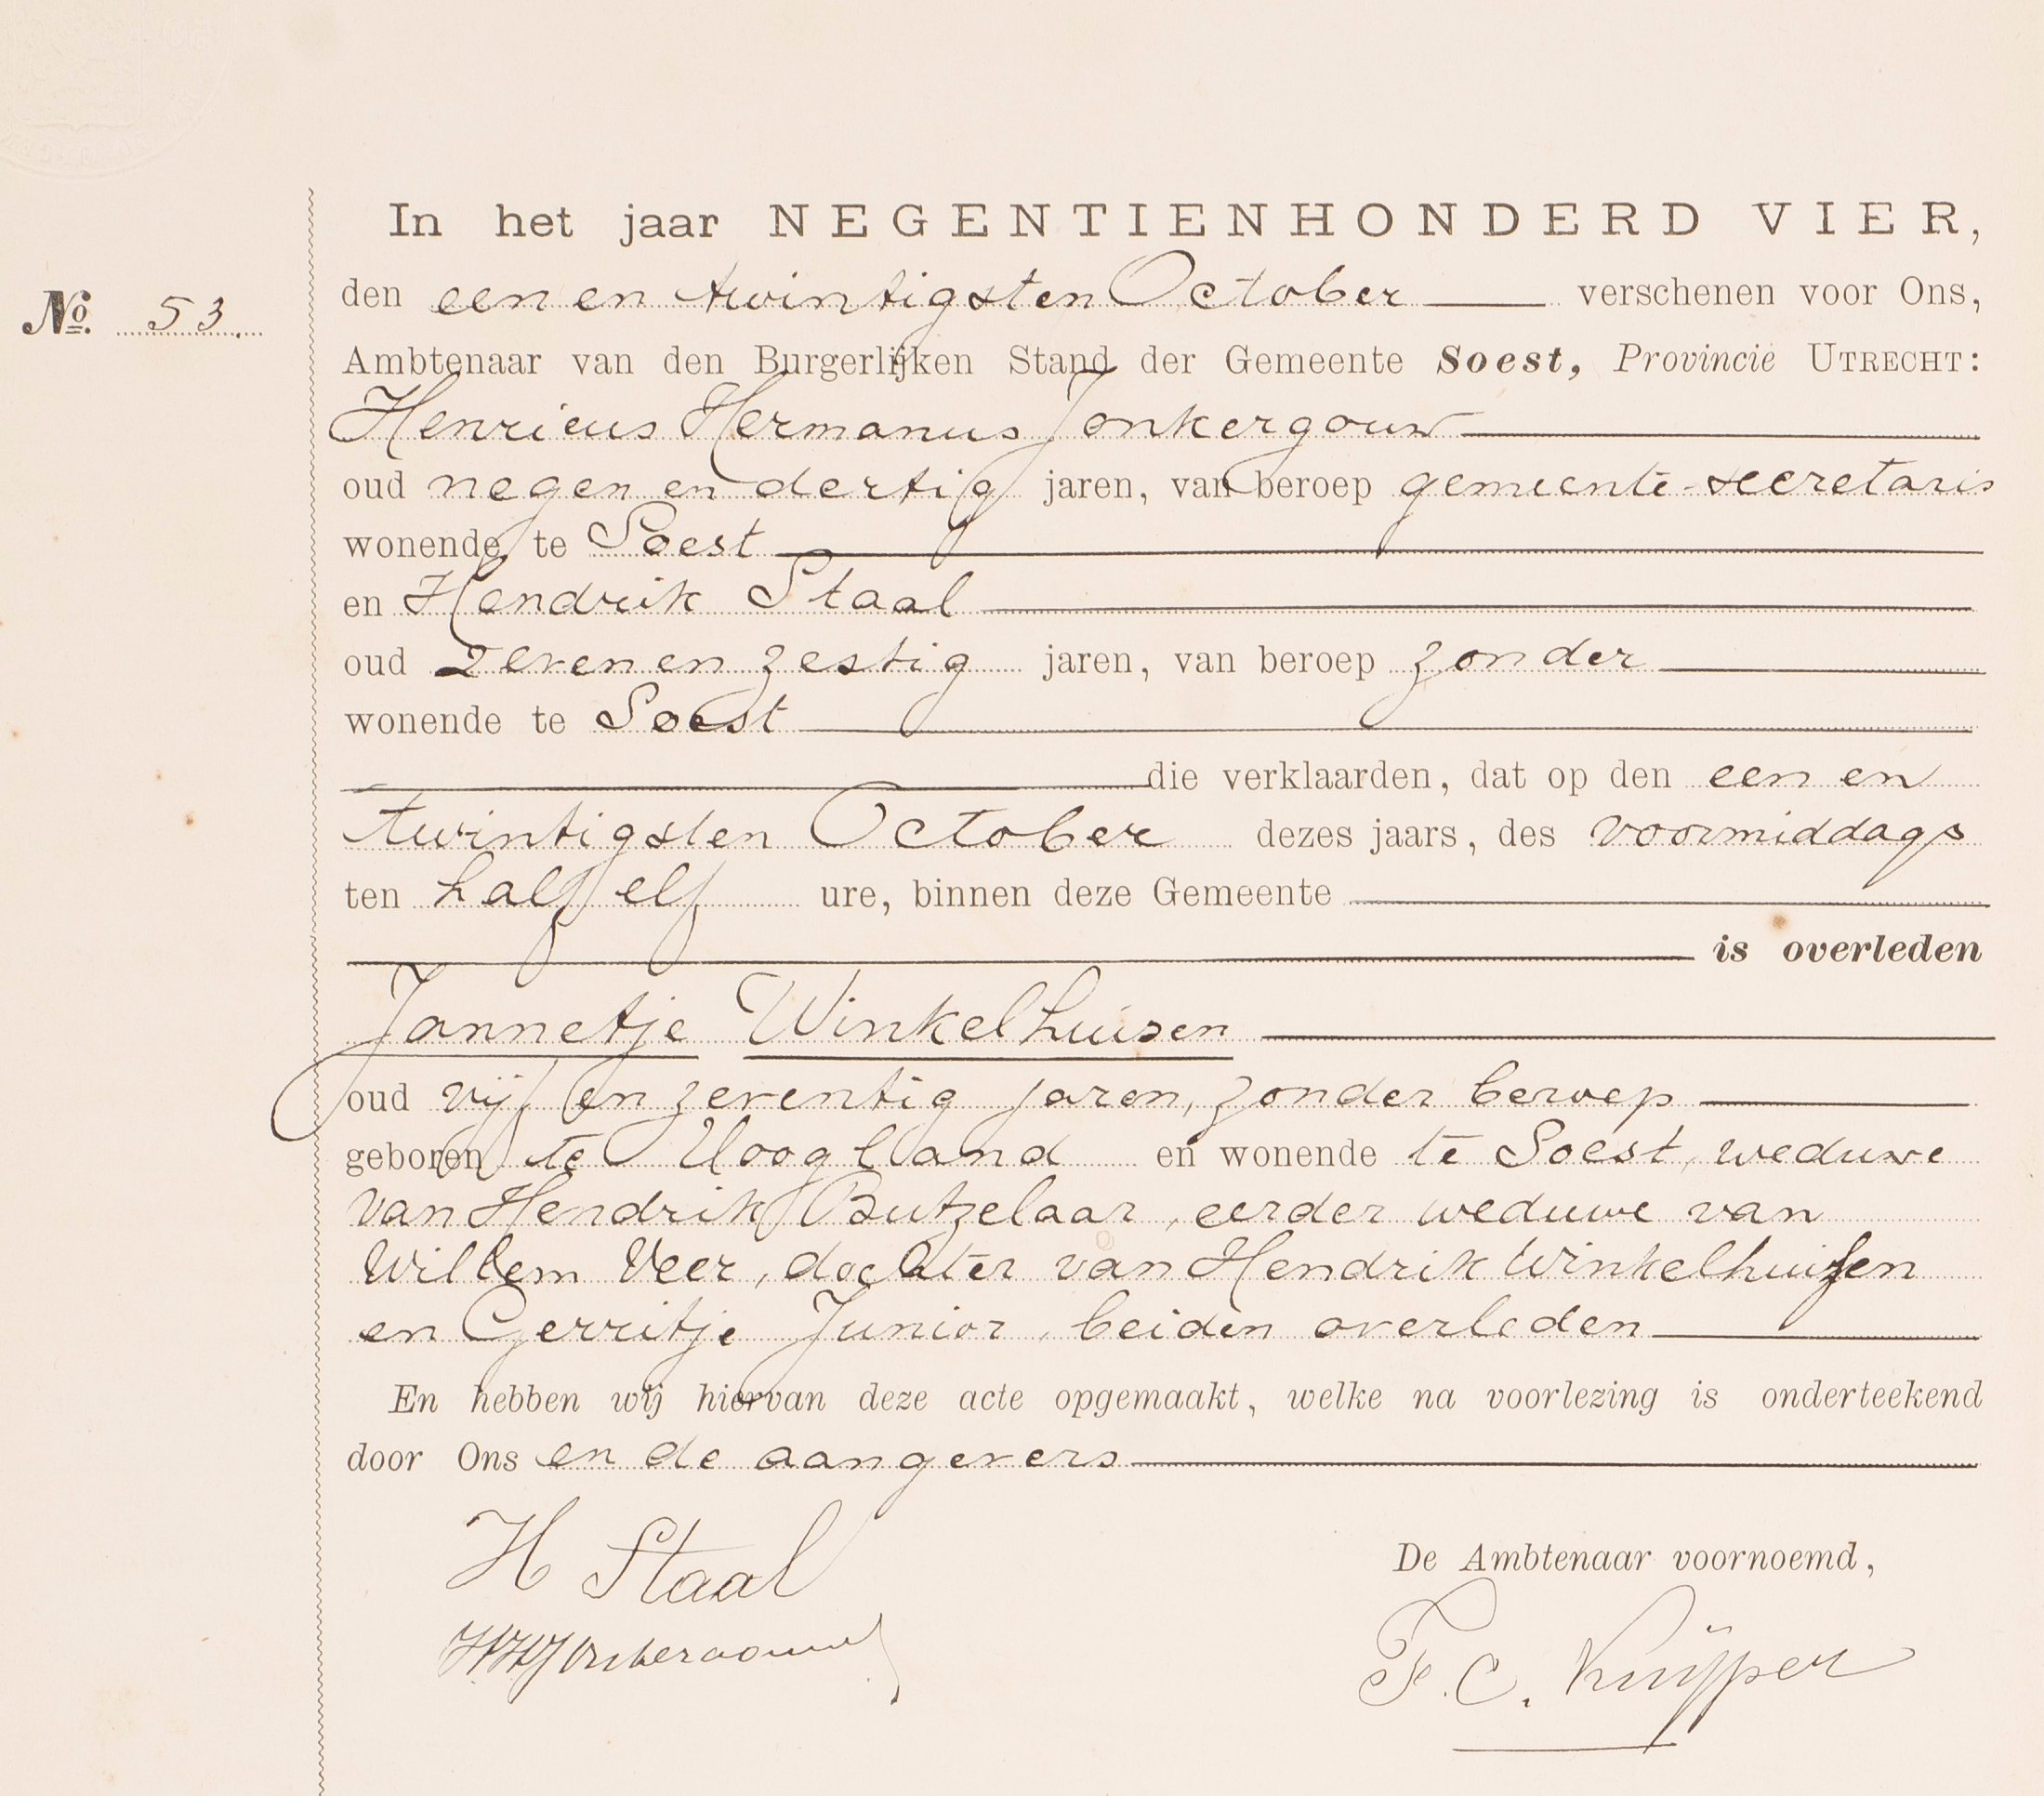 In het jaar NEGENTIENHONDERD VIER,
No. 53.
den een en twintigsten October verschenen voor Ons,
Ambtenaar van den Burgerlijken Stand der Gemeente Soest, Provincie UTRECHT:
Henricus Hermanus Jonkergouw
oud negen en dertig jaren, van beroep gemeente-secretaris
wonende te Soest
en Hendrik Staal
oud zeven en zestig jaren, van beroep zonder
wonende te Soest
die verklaarden, dat op den een en
twintigsten October dezes jaars, des voormiddags
ten half elf ure, binnen deze Gemeente
is overleden
Jannetje Winkelhuisen
oud vijf en zeventig jaren, zonder beroep
geboren te Hoogland en wonende te Soest, weduwe
van Hendrik Butzelaar, eerder weduwe van
Willem Veer, dochter van Hendrik Winkelhuizen
en Gerritje Junior, beiden overleden
En hebben wij hiervan deze acte opgemaakt, welke na voorlezing is onderteekend
door Ons en de aangevers
H Staal
De Ambtenaar voornoemd,
HHJonkergouw
F. C. Kuijper